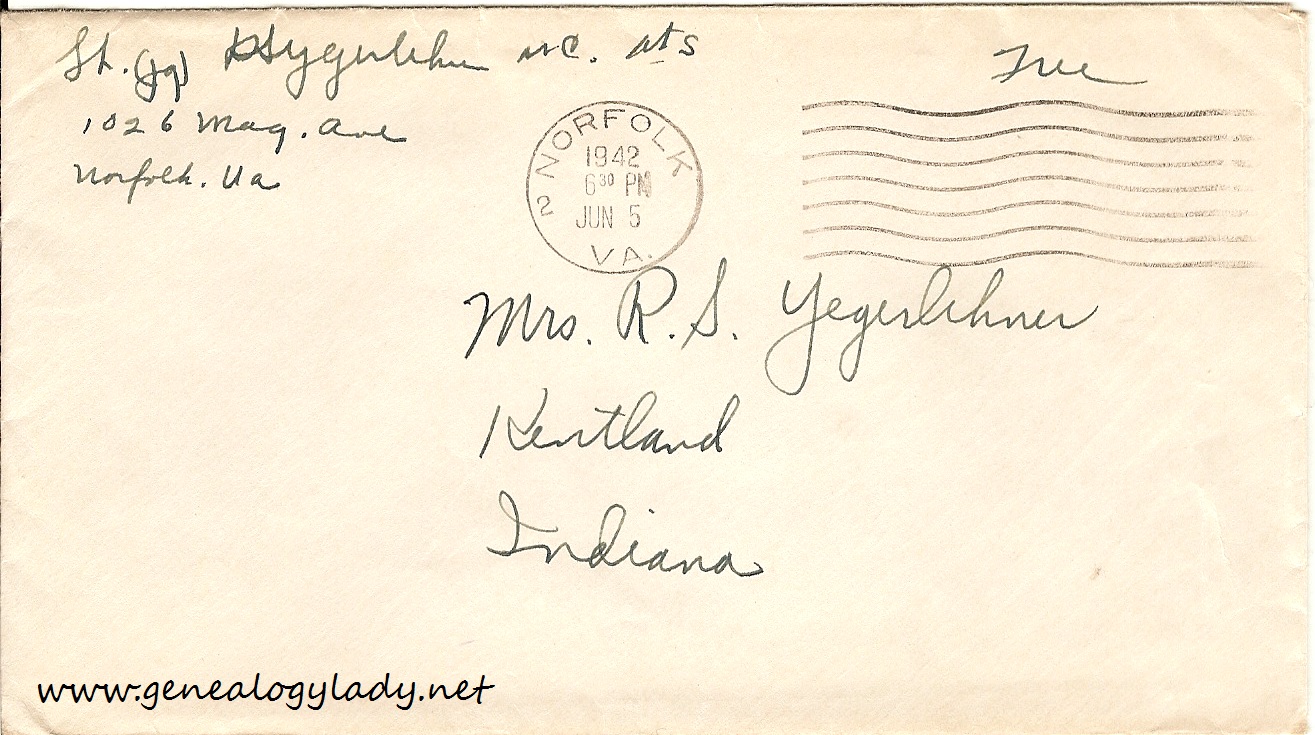 Lt. (jg) Yegerlehner M.C. ats
Free
1026 Mag. Ave
Norfolk. Va
2 NORFOLK VA.
1942
6³⁰ PM
JUN 5
Mrs. R. S. Yegerlehner
Kentland
Indiana
www.genealogylady.net